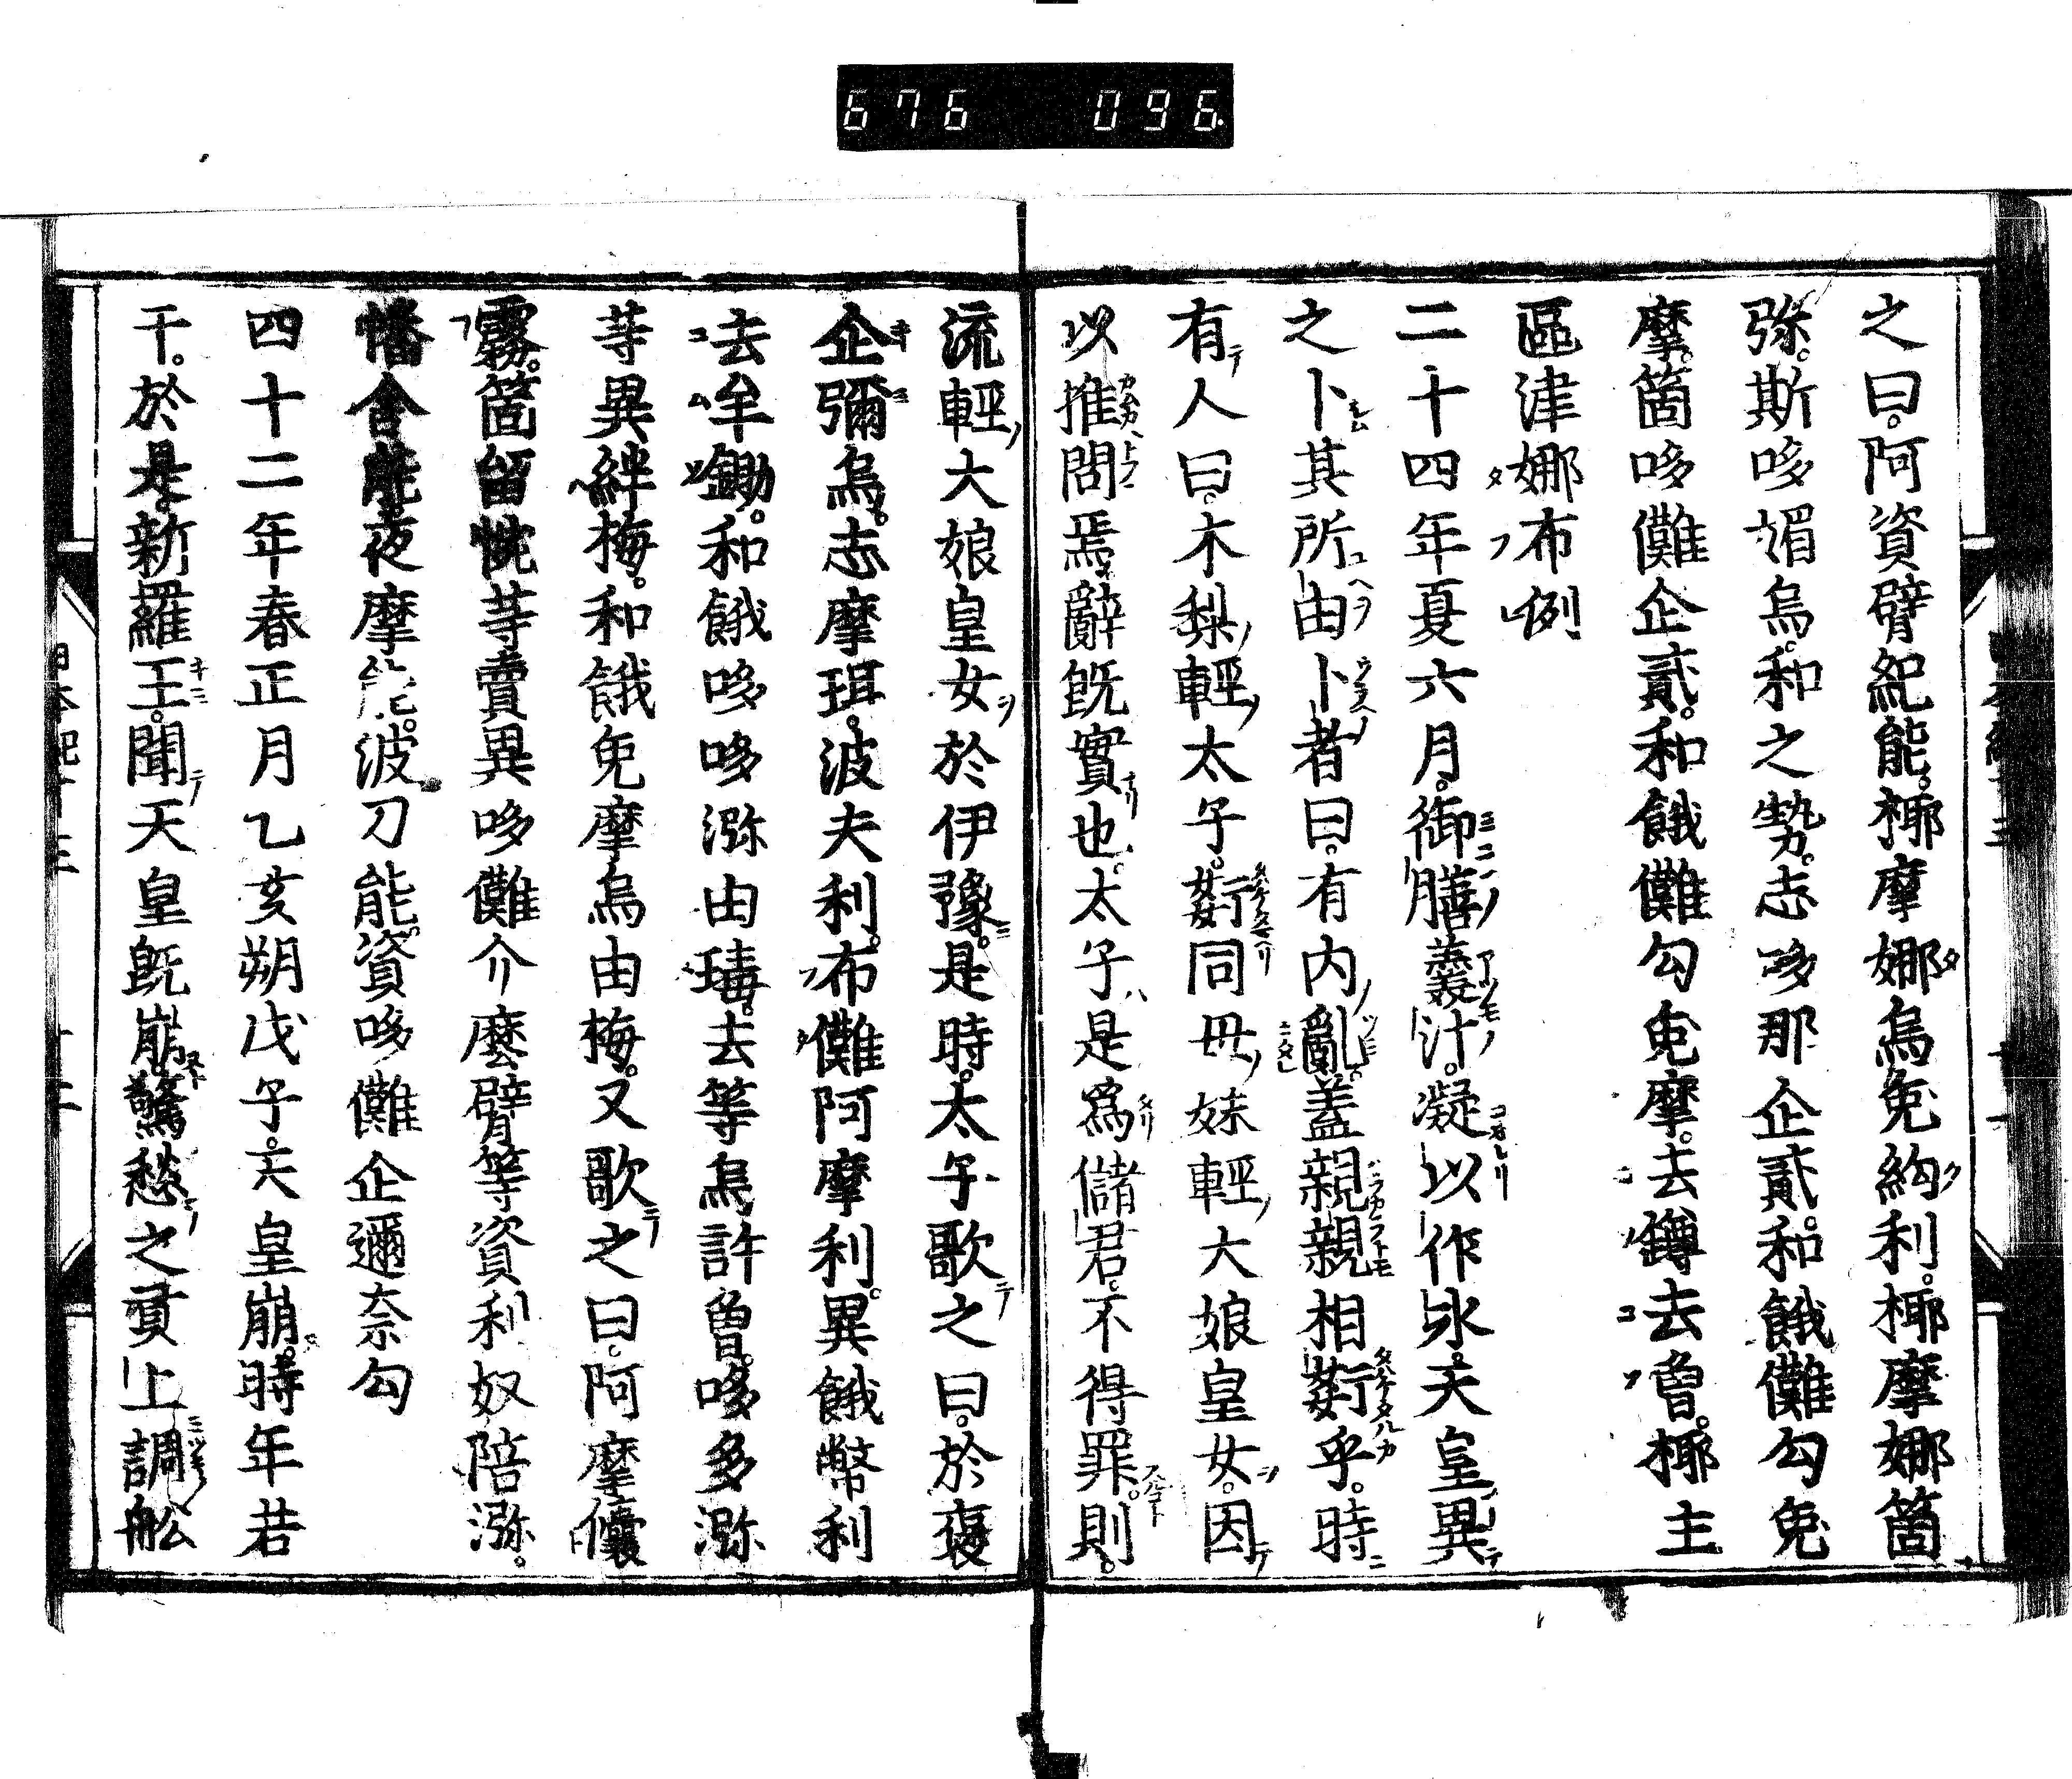 676 096
之曰。阿資臂紀能。揶摩娜烏免絇利。揶摩娜箇
弥。斯哆媚烏。和之勢。志哆那企貳。和餓儺勾免
摩。箇哆儺企貳。和餓儺勾免摩。去鐏去魯。揶主
區津娜布例
二十四年夏六月。御膳羹汁。凝以作氷。天皇異
之卜其所由卜者曰。有内亂。盖親親相姧乎。時
有人曰。木梨輕太子。姧同母妹輕大娘皇女。因
以推問焉。辭旣實也。太子是爲儲君。不得罪。則。
流輕大娘皇女於伊豫。是時。太子歌之曰。於裒
企彌烏。志摩珥。波夫利。布儺阿摩利。異餓幣利
去牟鋤。和餓哆哆瀰由瑇。去等烏許魯。哆多瀰
䓁異絆梅。和餓免摩烏由梅。又歌之曰。阿摩儴
霧。箇留惋䓁賣異哆儺介麼臂等資利奴陪瀰。
幡舎能夜摩能。波刀能。資哆儺企邇奈勾
四十二年春正月乙亥朔戊子。天皇崩。時年若
干。於是。新羅王。聞天皇旣崩驚愁之貢上調舩